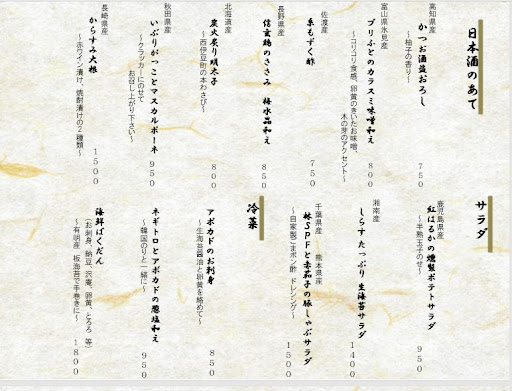 日本酒のあて
高知県産
かつお酒盗おろし
〜柚子の香り〜
750
富山県氷見産
ブリふとのカラスミ味噌和え
〜コリコリ食感、卵黄のきいたお味噌、
木の芽のアクセント〜
800
佐渡産
糸もずく酢
750
長野県産
信玄鶏のささみ 梅水晶和え
850
北海道産
炭火炙り明太子
〜西伊豆町の本わさび〜
800
秋田県産
いぶりがっことマスカルポーネ
〜クラッカーにのせて
お召し上がり下さい〜
950
長崎県産
からすみ大根
〜赤ワイン漬け 焼酎漬けの2種類〜
1500
サラダ
鹿児島県産
紅はるかの燻製ポテトサラダ
〜半熟玉子のせ〜
950
湘南産
しらすたっぷり 生海苔サラダ
1400
千葉県産 熊本県産
林SPFと赤茄子の豚しゃぶサラダ
〜自家製ごまポン酢 ドレッシング〜
1500
冷菜
アボカドのお刺身
〜生海苔醤油と卵黄を絡めて〜
850
ネギトロとアボカドの葱塩和え
〜韓国のりと一緒に〜
950
海鮮ばくだん
(お刺身、納豆、沢庵、卵黄、とろろ 等)
〜有明産 板海苔で手巻きに〜
1800